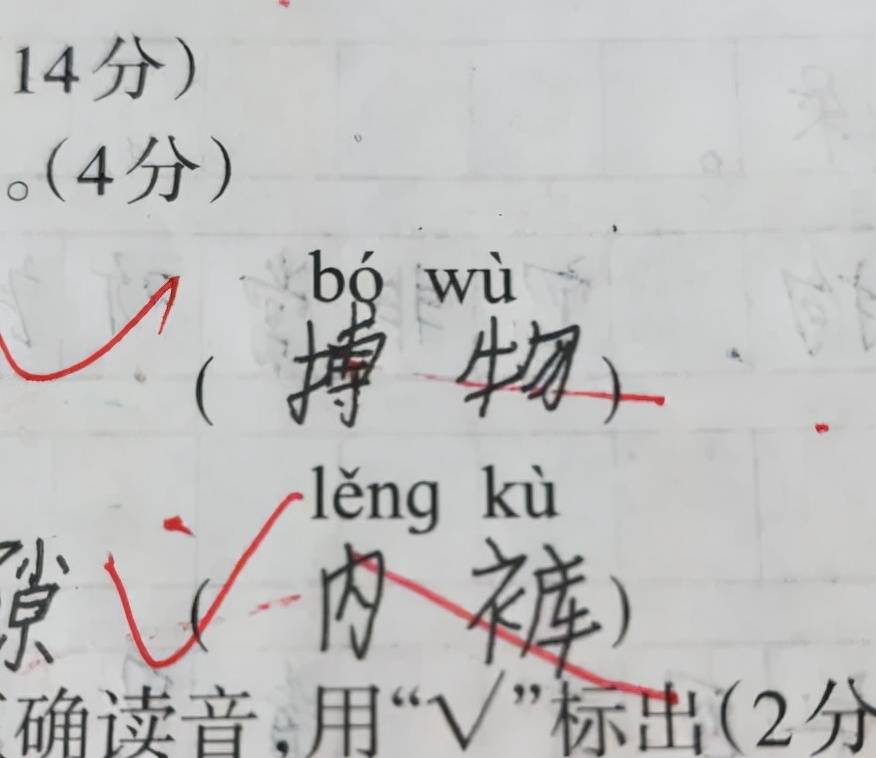 14分)
。(4分)
bó wù
(搏物)
lěng kù
隙 (内裤)
确读音,用“√”标出(2分